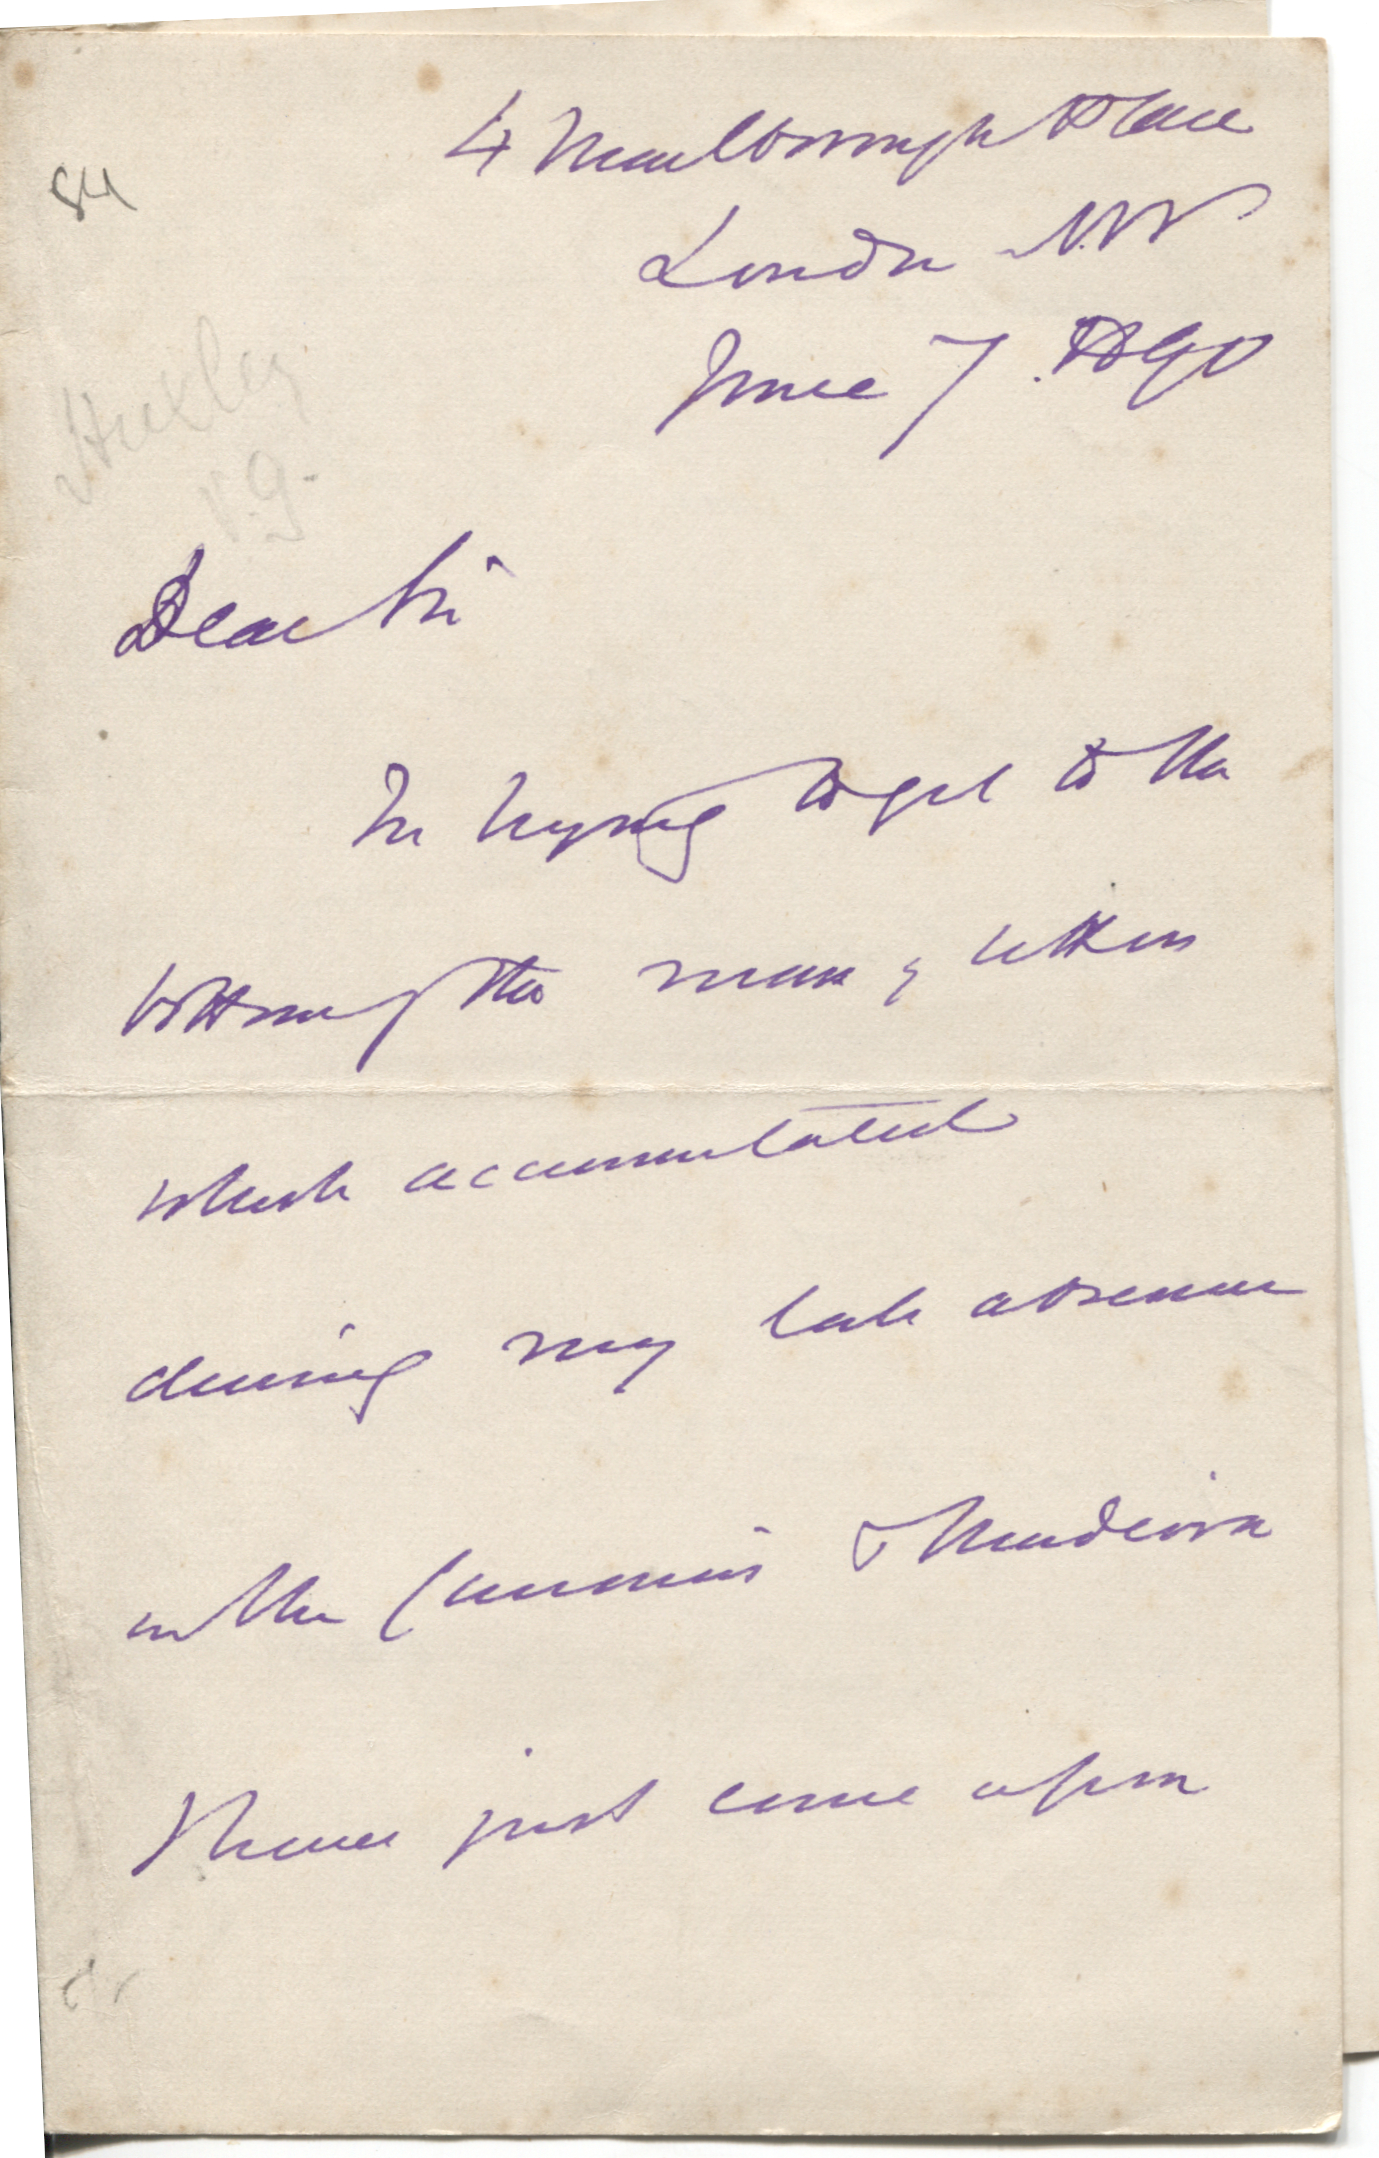 4 Marlborough Place
84
London N.W
June 7. 1890
Huxley
Dear Sir
In trying to get to the
bottom of the mass of letters
which accumulated
during my late absence
in the Canaries & Madeira
I have just come upon